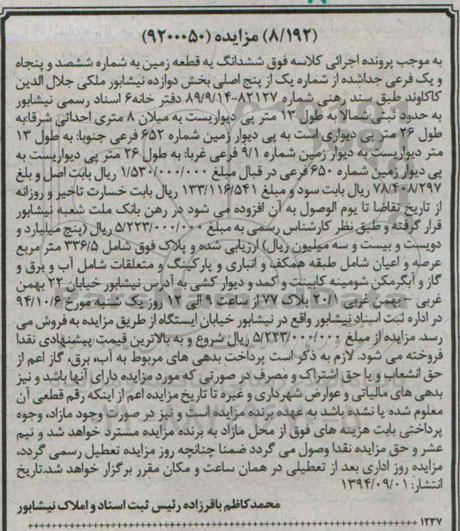 (۸/۱۹۲) مزایده (۹۲۰۰۰۵۰)
به موجب پرونده اجرائی کلاسه فوق ششدانگ یه قطعه زمین به شماره ششصد و پنجاه
و یک فرعی جداشده از شماره یک از پنج اصلی بخش دوازده نیشابور ملکی جلال الدین
کاکاوند طبق سند رهنی شماره ۸۲۱۲۷-۸۹/۹/۱۴ دفتر خانه۶ اسناد رسمی نیشابور
به حدود ثبتی:شمالا به طول ۱۳ متر پی دیواریست به میلان ۸ متری احداثی شرقابه
طول ۲۶ متر پی دیواری است به پی دیوار زمین شماره ۶۵۲ فرعی جنوبا: به طول ۱۳
متر دیواریست به دیوار زمین شماره ۹/۱ فرعی غربا: به طول ۲۶ متر پی دیواریست به
پی دیوار زمین شماره ۶۵۰ فرعی در قبال مبلغ ۱/۵۳۰/۰۰۰/۰۰۰ ریال بابت اصل و بلغ
۷۸/۴۰۸/۲۹۷ ریال بابت سود و مبلغ ۱۳۳/۱۱۶/۵۴۱ ریال بابت خسارت تاخیر و روزانه
از تاریخ تقاضا تا یوم الوصول به آن افزوده می شود در رهن بانک ملت شعبه نیشابور
قرار گرفته و طبق نظر کارشناس رسمی به مبلغ ۵/۲۲۳/۰۰۰/۰۰۰ ریال (پنج میلیارد و
دویست و بیست و سه میلیون ریال) ارزیابی شده و پلاک فوق شامل ۳۳۶/۵ متر مربع
عرصه و اعیان شامل طبقه همکف و انباری و پارکینگ و متعلقات شامل آب و برق و
گاز و آبگرمکن شومینه کابینت و کمد و دیوار کشی به آدرس نیشابور خیابان ۲۲ بهمن
غربی - بهمن غربی ۲۰/۱ پلاک ۷۷ از ساعت ۹ الی ۱۲ روز یک شنبه مورخ ۹۴/۱۰/۶
در اداره ثبت اسناد نیشابور واقع در نیشابور خیابان ایستگاه از طریق مزایده به فروش می
رسد. مزایده از مبلغ ۵/۲۲۳/۰۰۰/۰۰۰ ریال شروع و به بالاترین قیمت پیشنهادی نقدا
فروخته می شود. لازم به ذکر است پرداخت بدهی های مربوط به آب، برق، گاز اعم از
حق انشعاب و یا حق اشتراک و مصرف در صورتی که مورد مزایده دارای آنها باشد و نیز
بدهی های مالیاتی و عوارض شهرداری و غیره تا تاریخ مزایده اعم از اینکه رقم قطعی آن
معلوم شده یا نشده باشد به عهده برنده مزایده است و نیز در صورت وجود مازاد، وجوه
پرداختی بابت هزینه های فوق از محل مازاد به برنده مزایده مسترد خواهد شد و نیم
عشر و حق مزایده نقدا وصول می گردد ضمنا چنانچه روز مزایده تعطیل رسمی گردد،
مزایده روز اداری بعد از تعطیلی در همان ساعت و مکان مقرر برگزار خواهد شد.تاریخ
انتشار: ۱۳۹۴/۰۹/۰۱
محمدکاظم باقرزاده رئیس ثبت اسناد و املاک نیشابور
۱۲۳۷